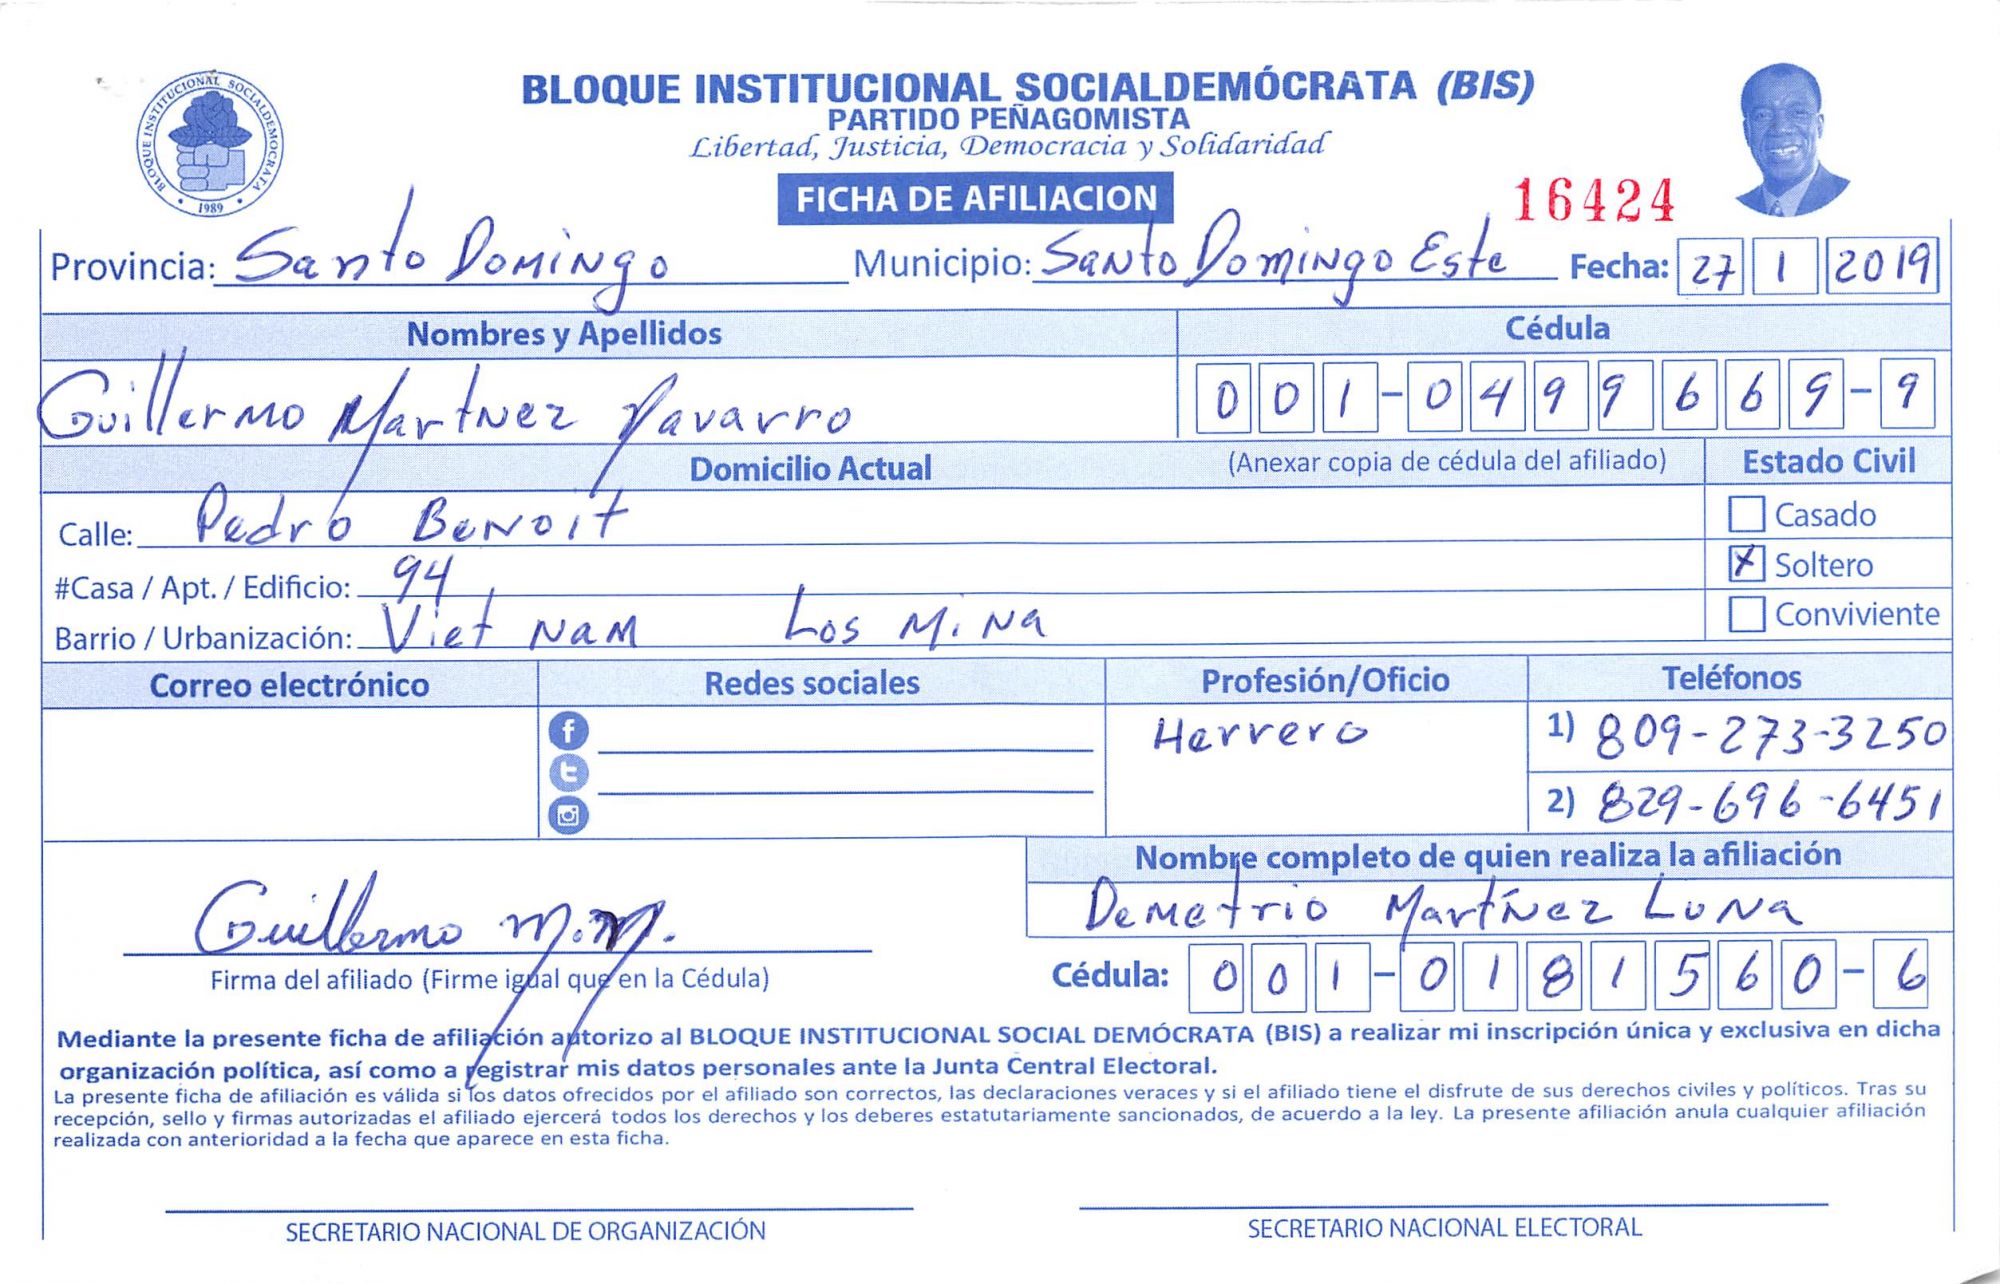 BLOQUE INSTITUCIONAL SOCIALDEMOCRATA
1989
BLOQUE INSTITUCIONAL SOCIALDEMÓCRATA (BIS)
PARTIDO PEÑAGOMISTA
Libertad, Justicia, Democracia y Solidaridad
FICHA DE AFILIACION
16424
Provincia: Santo Domingo Municipio: Santo Domingo Este Fecha: 27 1 2019
Nombres y Apellidos Cédula
Guillermo Martnez Navarro 001-0499669-9
Domicilio Actual (Anexar copia de cédula del afiliado) Estado Civil
Calle: Pedro Benoit Casado
#Casa / Apt. / Edificio: 94 X Soltero
Barrio / Urbanización: Viet Nam Los Mina Conviviente
Correo electrónico Redes sociales Profesión/Oficio Teléfonos
Herrero 1) 809-273-3250
2) 829-696-6451
Nombre completo de quien realiza la afiliación
Demetrio Martínez Luna
Guillermo M.M.
Firma del afiliado (Firme igual que en la Cédula) Cédula: 001-0181560-6
Mediante la presente ficha de afiliación autorizo al BLOQUE INSTITUCIONAL SOCIAL DEMÓCRATA (BIS) a realizar mi inscripción única y exclusiva en dicha
organización política, así como a registrar mis datos personales ante la Junta Central Electoral.
La presente ficha de afiliación es válida si los datos ofrecidos por el afiliado son correctos, las declaraciones veraces y si el afiliado tiene el disfrute de sus derechos civiles y políticos. Tras su
recepción, sello y firmas autorizadas el afiliado ejercerá todos los derechos y los deberes estatutariamente sancionados, de acuerdo a la ley. La presente afiliación anula cualquier afiliación
realizada con anterioridad a la fecha que aparece en esta ficha.
SECRETARIO NACIONAL DE ORGANIZACIÓN SECRETARIO NACIONAL ELECTORAL